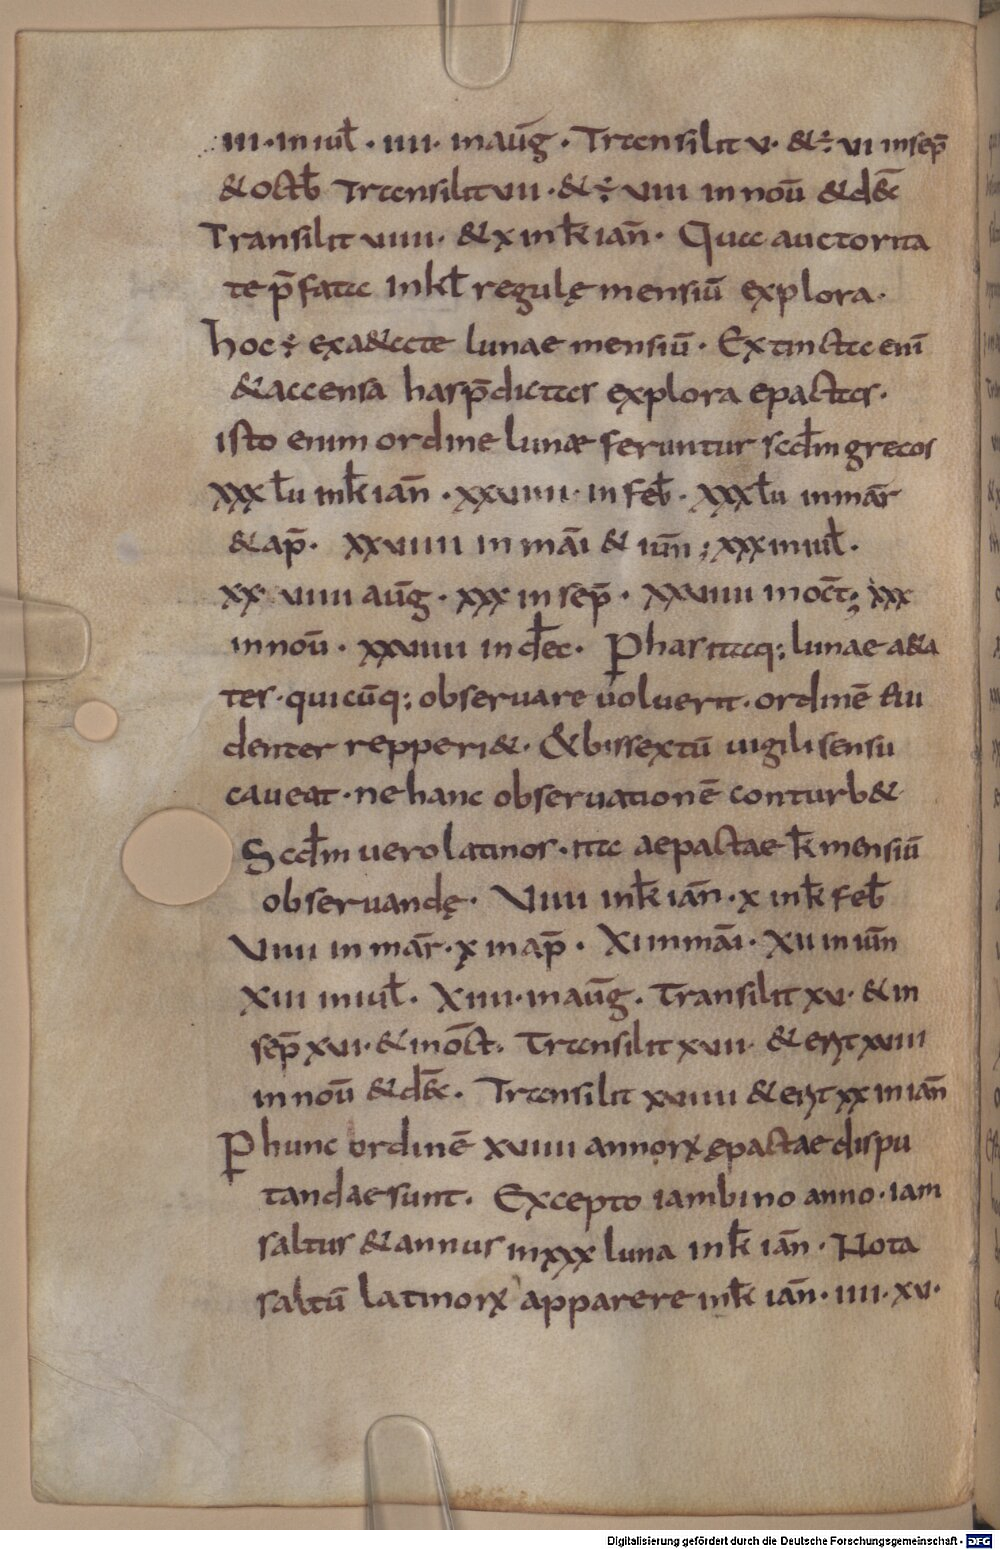 iii · in iul̄ · iiii · in aūg · Transilit v · & ÷ vi in sep̄
& octb̄ Transilit vii · & ÷ viii in noū & dēc
Transilit viiii · & x in k̄ iañ · Qua auctorita
te p̄fata In kl̄ regulę mensiū explora ·
hoc ÷ ex aetate lunae mensiū · Extincta enī
& accensa has p̄dictas explora epactas ·
isto enim ordine lunae feruntur scd̄m grecos
xxx lū in k̄ iañ · xxviiii · in feb̄ · xxx lū in mar̄
& ap̄ · xxviiii in māi & iūn ; xxx in iul̄ ·
xxviiii aūg · xxx in sep̄ · xxviiii in oct̄ ; xxx
in noū · xxviiii in dec̄ · P has itaq; lunae aeta
tes · qui cūq; observare voluerit · ordinē evi
denter repperi& · & bissextū vigili sensu
caveat · ne hanc observationē conturb&
Scd̄m vero latinos · ita aepactae k̄ mensiū
observandę · Viiii in k̄ iañ · x in k̄ feb̄
Viiii in mar̄ · x in ap̄ · Xi in māi · Xii in iūn
Xiii in iul̄ · Xiiii · in aūg · Transilit xv · & in
sep̄ xvi · & in oct̄ · Transilit xvii · & erit xviii
in noū & dēc · Transilit xviiii & erit xx in iañ
P hunc ordinē xviiii annoꝝ ępactae dispu
tandae sunt · Excepto iambino anno · iam
saltus & annus in xxx luna in k̄ iañ · Nota
saltū latinoꝝ apparere in k̄ iañ · iiii · xv ·
Digitalisierung gefördert durch die Deutsche Forschungsgemeinschaft - DFG